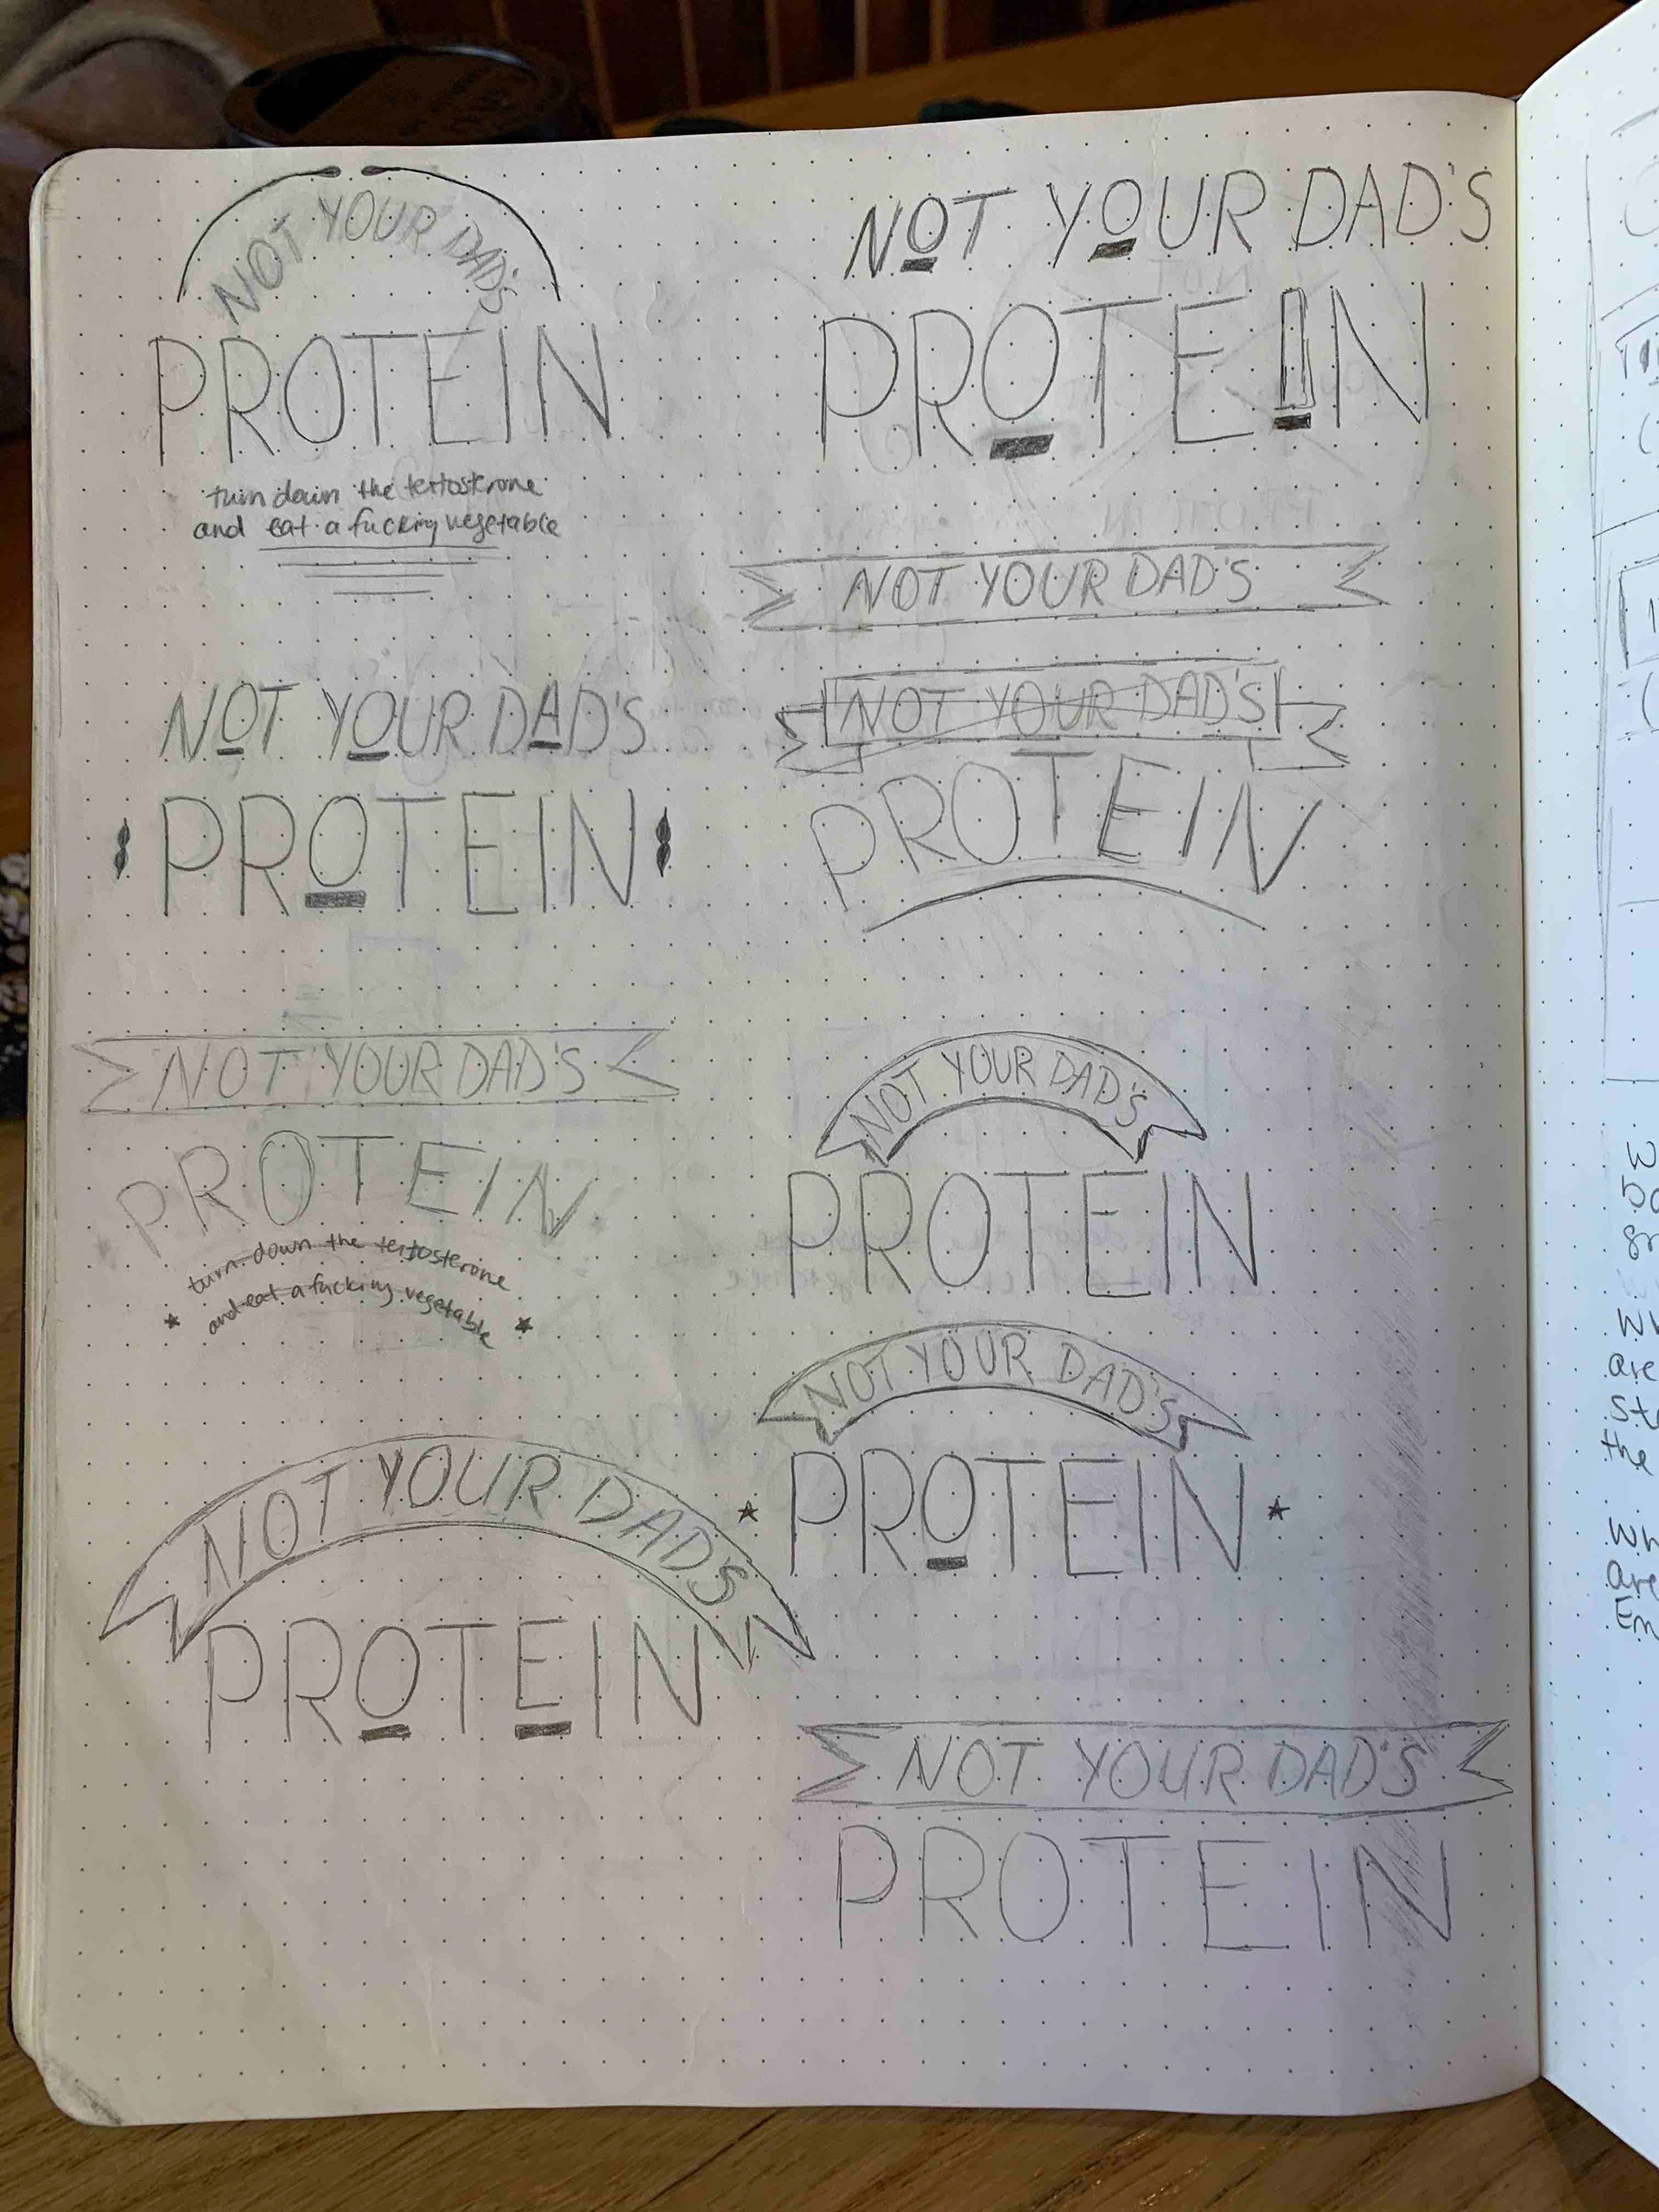 NOT YOUR DAD'S
PROTEIN
turn down the testosterone
and eat a fucking vegetable
NOT YOUR DAD'S
PROTEIN
NOT YOUR DAD'S
NOT YOUR DAD'S
PROTEIN
NOT YOUR DAD'S
PROTEIN
NOT YOUR DAD'S
PROTEIN
turn down the testosterone
and eat a fucking vegetable
NOT YOUR DAD'S
PROTEIN
NOT YOUR DAD'S
PROTEIN
NOT YOUR DADS
PROTEIN
NOT YOUR DAD'S
PROTEIN
are
the
are